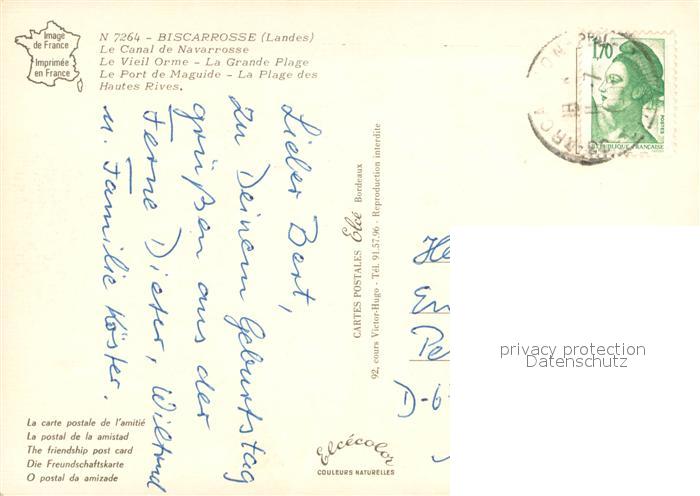 Image
de France
Imprimée
en France
N 7264 - BISCARROSSE (Landes)
Le Canal de Navarrosse
Le Vieil Orme - La Grande Plage
Le Port de Maguide - La Plage des
Hautes Rives.
1,70
POSTES
REPUBLIQUE FRANÇAISE
Lieber Bert,
zu Deinem Geburtstag
grüßen aus der
Ferne Dieter, Wiltrud
u. Familie Köster.
CARTES POSTALES Elcé Bordeaux
92, cours Victor-Hugo - Tél. 91.57.96 - Reproduction interdite
He
D-6
privacy protection
Datenschutz
La carte postale de l'amitié
La postal de la amistad
The friendship post card
Die Freundschaftskarte
O postal da amizade
Elcécolor
COULEURS NATURELLES